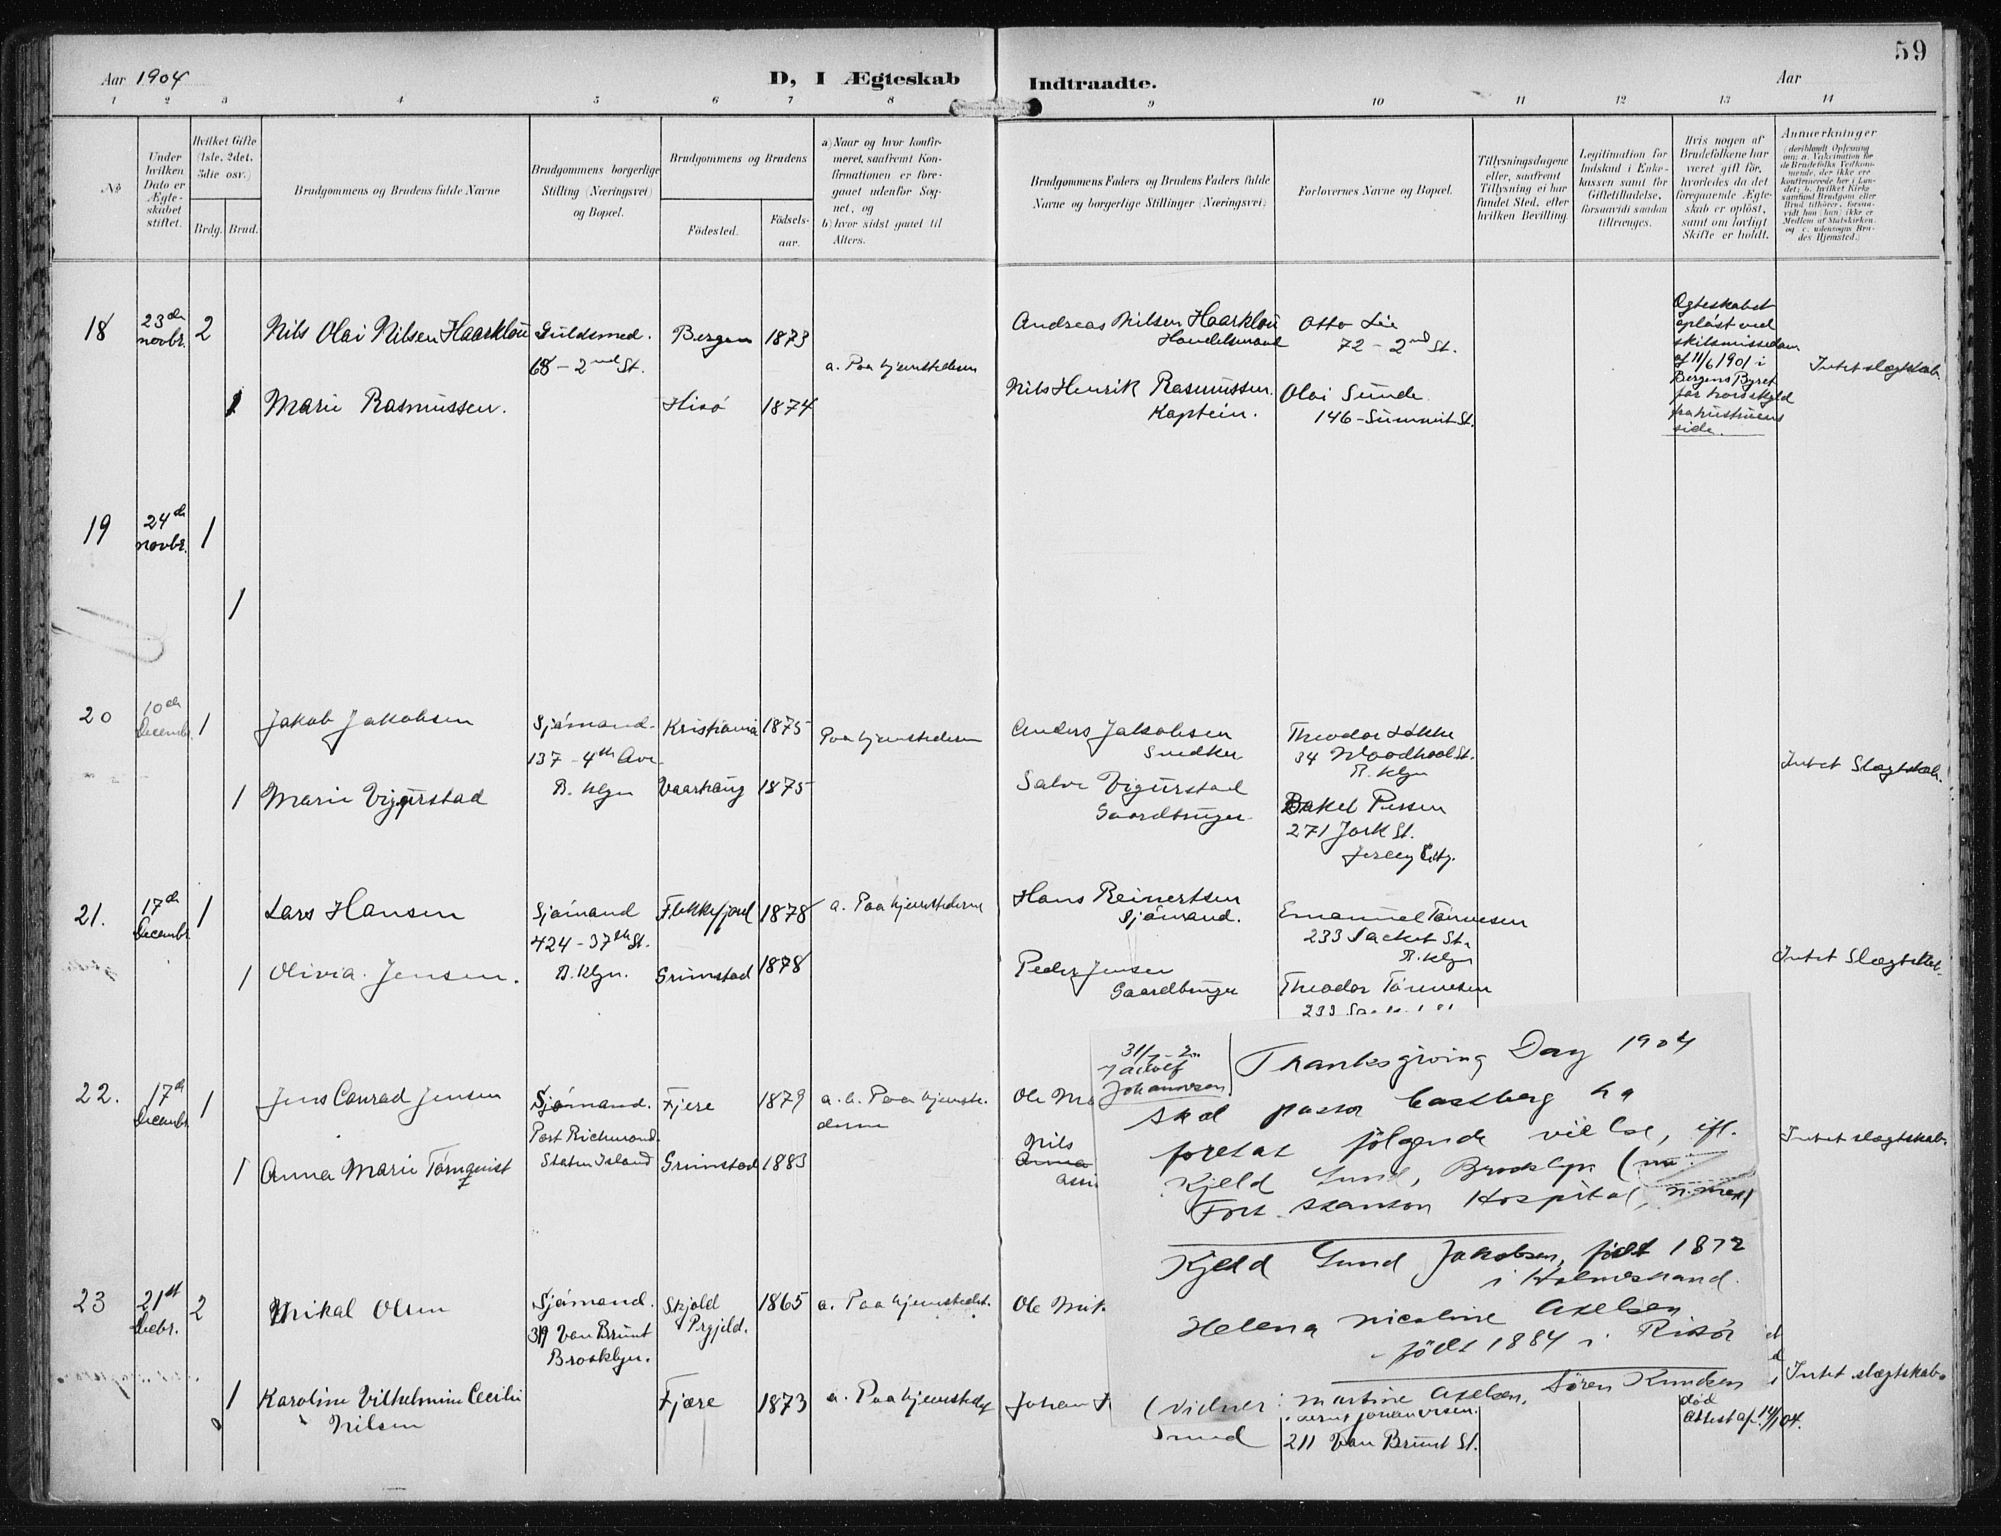 59
Aar 1904
D, I Ægteskab Indtraadte.
Aar
1 2 3 4 5 6 7 8 9 10 11 12 13 14
No
Under hvilken Dato er Ægteskabet stiftet.
Hvilket Gifte (1ste, 2det, 3die osv.)
Brdg. Brud.
Brudgommens og Brudens fulde Navne
Brudgommens borgerlige Stilling (Næringsvei) og Bopæl.
Brudgommens og Brudens
Fødested.
Fødselsaar.
a) Naar og hvor konfirmeret, saafremt Konfirmationen er foregaaet udenfor Sognet, og
b) hvor sidst gaaet til Alters.
Brudgommens Faders og Brudens Faders fulde Navne og borgerlige Stillinger (Næringsvei)
Forlovernes Navne og Bopæl.
Tillysningsdagene eller, saafremt Tillysning ei har fundet Sted, efter hvilken Bevilling.
Legitimation for Indskud i Enkekassen samt for Giftetilladelse, forsaavidt saadan tiltrænges.
Hvis nogen af Brudefolkene har været gift før, hvorledes da det foregaaende Ægteskab er opløst, samt om lovligt Skifte er holdt.
Anmerkninger
(deriblandt Oplysning om: a. Vakcination for de Brudefolks Vedkommende, der ikke ere konfirmerede her i Landet; b. hvilket Kirkesamfund Brudgom eller Brud tilhører, forsaavidt han (hun) ikke er Medlem af Statskirken, og c. udensogns Brudes Hjemsted.)
18
23de novbr.
2
Nils Olai Nilsen Haarklou
Guldsmed.
68 - 2nd St.
Bergen
1873
a. Paa hjemstederne
Andreas Nilsen Haarklou
Handelsmand
Otto Lie
72 - 2nd St.
Ægteskabet
opløst ved
skilsmissedom
af 11/6 1901 i
Bergens Byret
for hors skyld
fra hustruens
side.
Intet slægtskab.
1
Marie Rasmussen.
Hisø
1874
Nils Henrik Rasmussen.
Kaptein.
Olai Sunde.
146 - Summit St.
19
24de novbr.
1
1
20
10de Decembr.
1
Jakob Jakobsen
Sjømand.
137 - 4th Ave
B. klyn
Kristiania
1875
Paa hjemstederne
Anders Jakobsen
Snedker
Theodor Løkke
34 Woodhool St.
B. klyn
Intet Slægtskab.
1
Marie Vigurstad
Vaarhaug
1875
Salve Vigurstad
Gaardbruger
Bakel Pissen
271 York St.
Jersey City.
21.
17de Decembr.
1
Lars Hansen
Sjømand
424 - 37th St.
B. klyn.
Flekkefjord
1878
a. Paa hjemstederne
Hans Reinertsen
Sjømand.
Emanuel Tønnesen
233 Sacket St.
B. klyn
Intet Slægtskab.
1
Olivia Jensen.
Grimstad
1878
Peder Jensen
Gaardbruger
Theodor Tønnesen
233
22.
17de Decembr.
1
Jens Conrad Jensen
Sjømand.
Port Richmond.
Staten Island
Fjere
1879
a. b. Paa hjemstederne
Ole
Intet slægtskab.
1
Anna Marie Tørnquist
Grimstad
1883
Nils
Anna
23
21st Decbr.
2
Mikal Olsen
Sjømand.
319 Van Brunt
Brooklyn.
Skjold
Prgjeld.
1865
a. Paa hjemstedet.
Ole Mik
Intet slægtskab.
1
Karoline Vilhelmine Cecilie
Nilsen
Fjære
1873
a. Paa hjemstedet
Johan
211 Van Brunt St.
død
attest af 14/1 04.
31/7
Johannesen
Thanksgiving Day 1904
skal pastor Castberg ha
foretat følgende vielse, ifl.
Kjeld Lund, Brooklyn (nu
Fort Stanton Hospital, N. Mex)
Kjeld Lund Jakobsen, født 1872
i Holmestrand.
Helena Nicoline Axelsen
- født 1884 i Risør
(Vidner: Martine Axelsen, Søren Knudsen